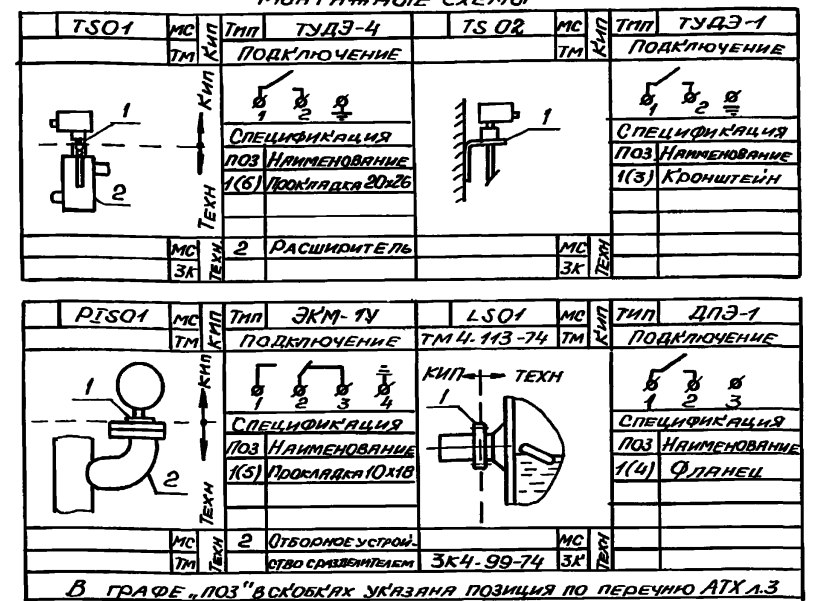 МОНТАЖНЫЕ СХЕМЫ
TS01 МС КИП ТИП ТУДЭ-4
ТМ ПОДКЛЮЧЕНИЕ
1 2
КИП
ТЕХН
1
2
СПЕЦИФИКАЦИЯ
ПОЗ НАИМЕНОВАНИЕ
1(6) ПРОКЛАДКА 20х26
МС ТЕХН 2 РАСШИРИТЕЛЬ
ЗК
TS 02 МС КИП ТИП ТУДЭ-1
ТМ ПОДКЛЮЧЕНИЕ
1 2
1
СПЕЦИФИКАЦИЯ
ПОЗ НАИМЕНОВАНИЕ
1(3) КРОНШТЕЙН
МС ТЕХН
ЗК
PIS01 МС КИП ТИП ЭКМ-1У
ТМ ПОДКЛЮЧЕНИЕ
1 2 3 4
КИП
ТЕХН
1
2
СПЕЦИФИКАЦИЯ
ПОЗ НАИМЕНОВАНИЕ
1(5) ПРОКЛАДКА 10х18
МС ТЕХН 2 ОТБОРНОЕ УСТРОЙ-
ТМ СТВО С РАЗДЕЛИТЕЛЕМ
LS01 МС КИП ТИП ДПЭ-1
ТМ 4-113-74 ТМ ПОДКЛЮЧЕНИЕ
КИП ТЕХН
1
1 2 3
СПЕЦИФИКАЦИЯ
ПОЗ НАИМЕНОВАНИЕ
1(4) ФЛАНЕЦ
МС ТЕХН
ЗК4-99-74 ЗК
В ГРАФЕ „ПОЗ" В СКОБКАХ УКАЗАНА ПОЗИЦИЯ ПО ПЕРЕЧНЮ АТХ Л.3